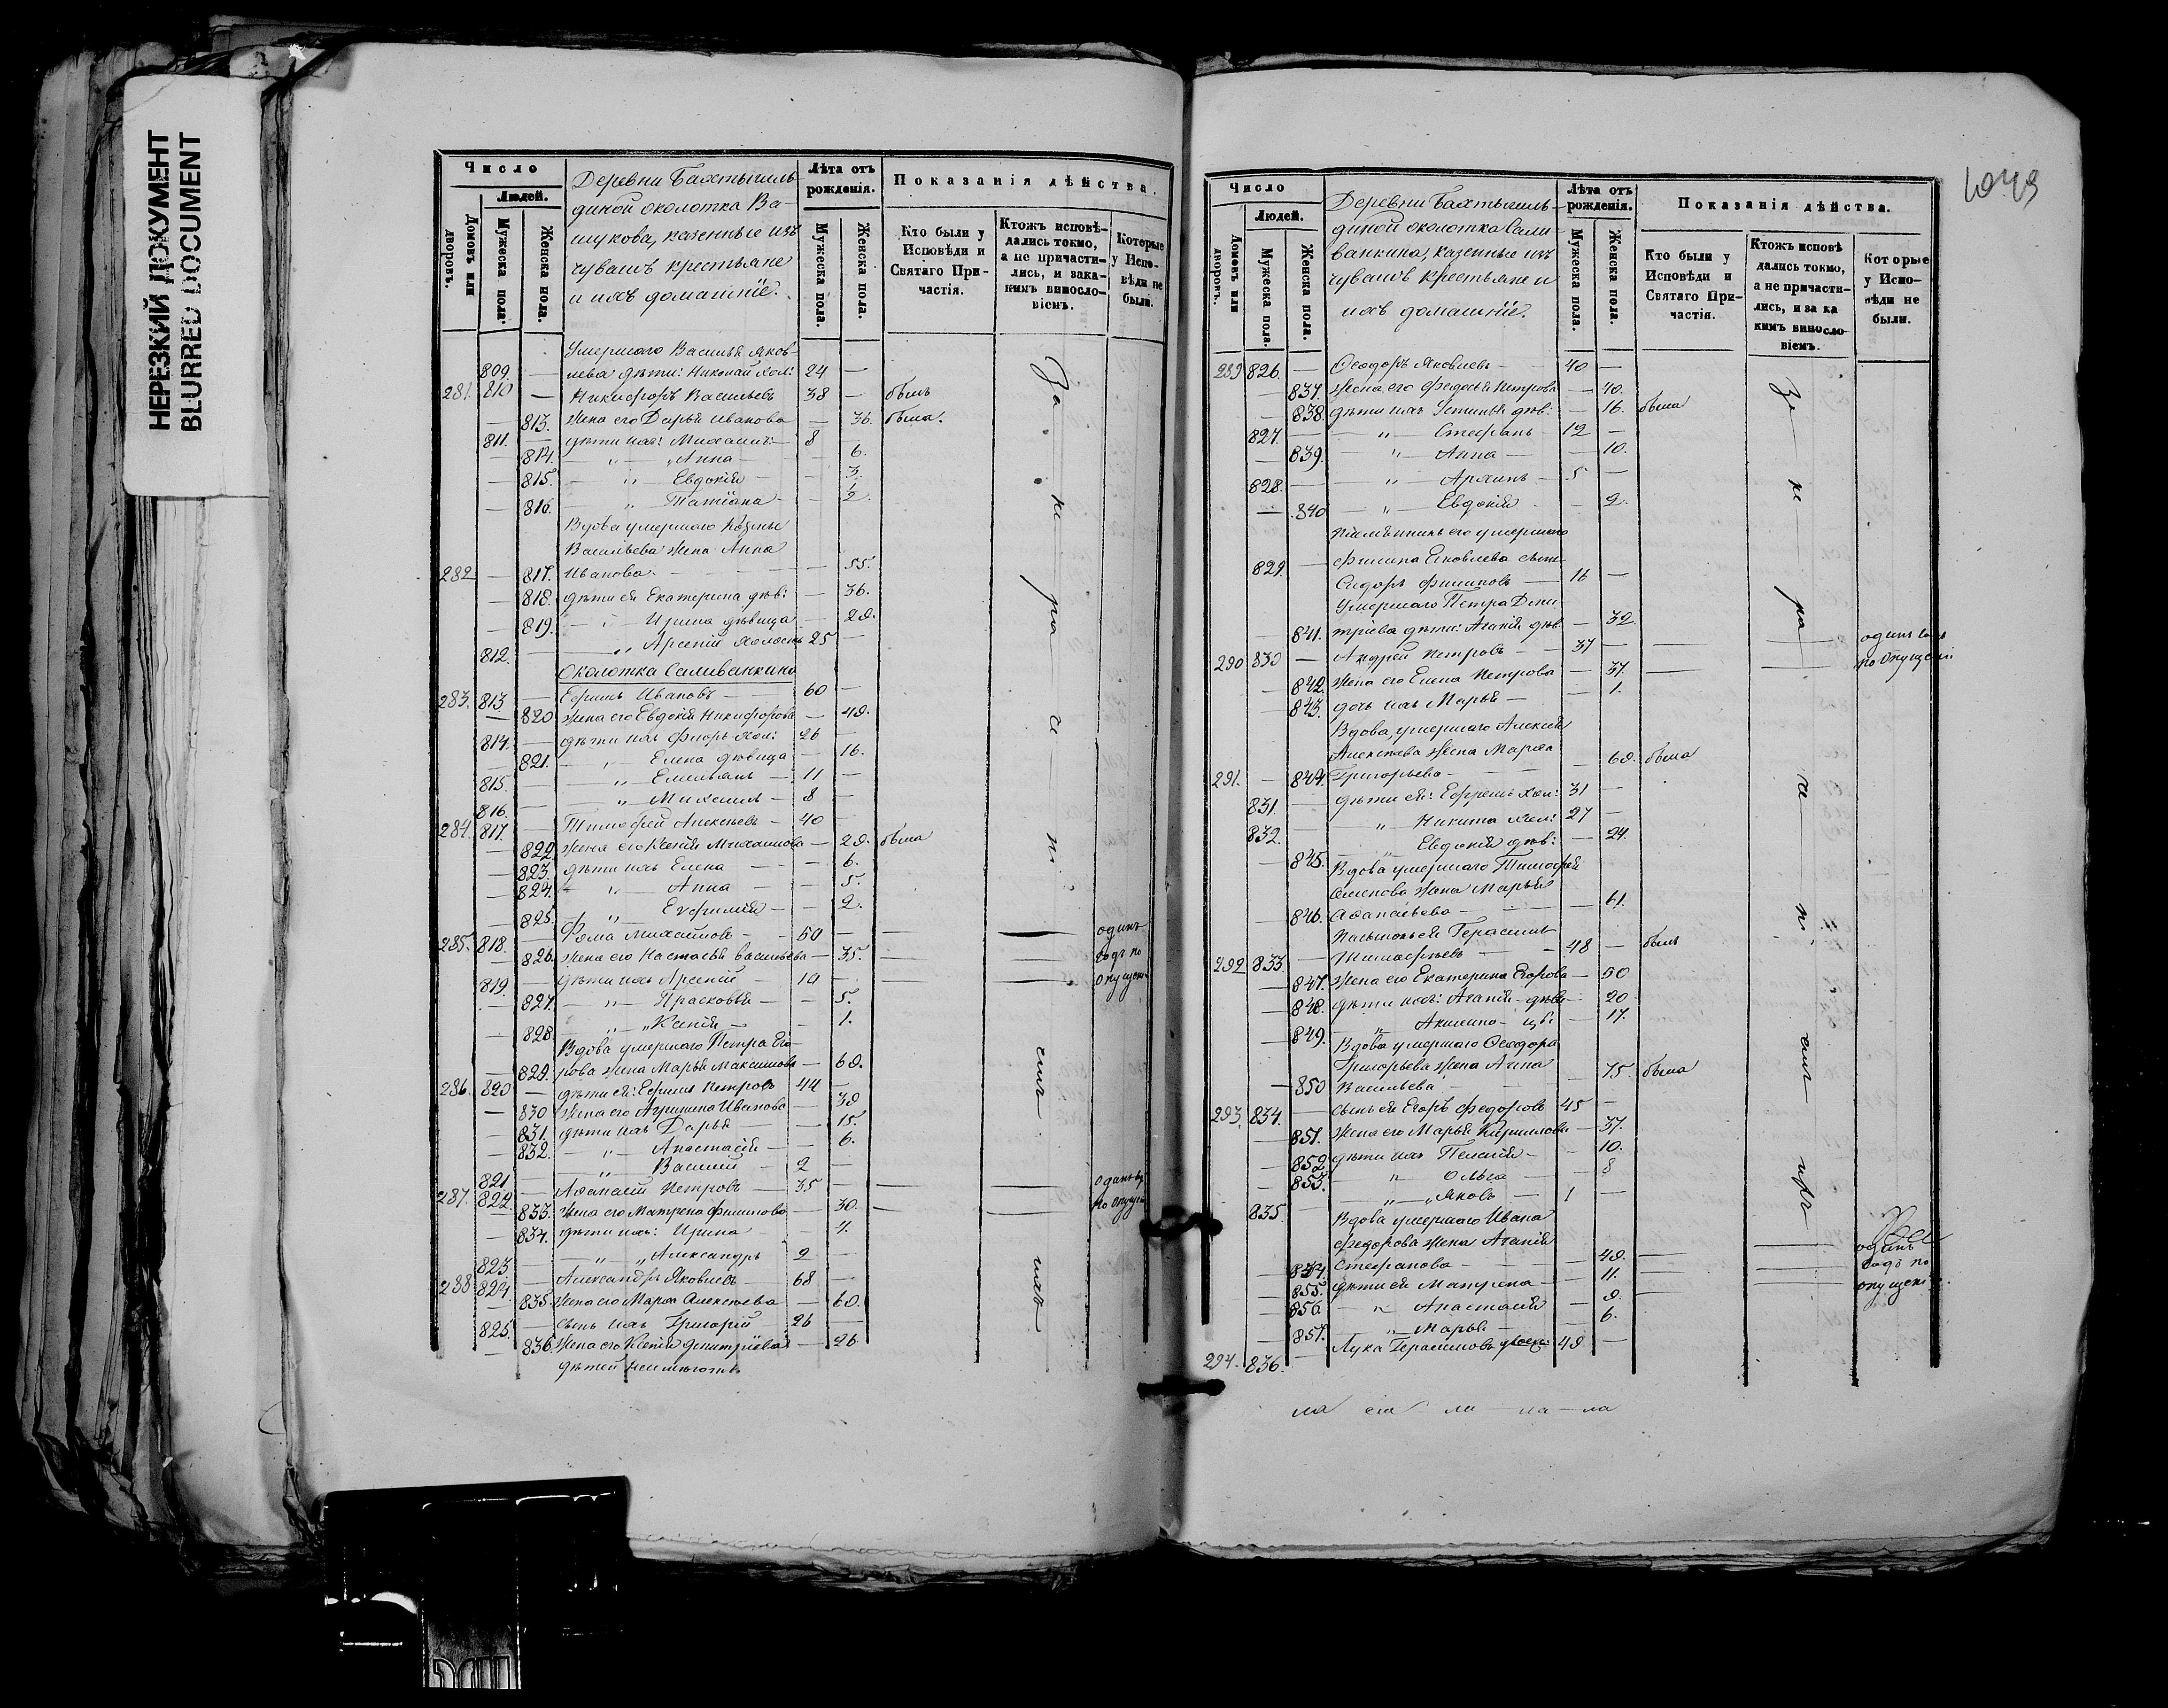 НЕРЕЗКИЙ ДОКУМЕНТ
BLURRED DOCUMENT
Число
Людей.
Домовъ или дворовъ.
Мужеска пола.
Женска пола.
Деревни Бахтыгиль-
диной околотка Ва-
шукова, казенные изъ
чувашъ крестьяне
и ихъ домашніе.
Лѣта отъ рожденія.
Мужеска пола.
Женска пола.
Показанія дѣйства.
Кто были у Исповѣди и Святаго При-частія.
Ктожъ исповѣ-дались токмо, а не причасти-лись, и зака-кимъ винословіемъ.
Которые у Испо-вѣди не были.
Умершаго Василья Яков-
809. — лева дѣти: Николай хол: 24 —
281. 810 — Никифоръ Васильевъ 38 — былъ
— 813. жена его Дарья Иванова — 36. была.
811. — дѣти ихъ: Михаилъ 8
— 814. „ Анна — 6.
— 815. „ Евдокія — 3.
— 816. „ Татіана — 2.
Вдова умершаго Козмы
Васильева жена Анна
282 — 817. Иванова — 55.
— 818. дѣти ея Екатерина дѣв: — 36.
— 819. „ Ирина дѣвица — 28.
812. — „ Арсеній холостъ 25 —
Околотка Саливанкина
283. 813. — Ефимъ Ивановъ 60 —
— 820 жена его Евдокія Никифорова — 48.
814. — дѣти ихъ Флоръ хол: 26 —
— 821. „ Елена дѣвица — 16.
815. — „ Емельянъ — 11 —
816. — „ Михаилъ — 8 —
284. 817. — Тимофей Алексѣевъ — 40 —
— 822. жена его Ксенія Михаилова — 28. была
— 823. дѣти ихъ Елена — 6.
— 824. „ Анна — 5.
— 825. „ Евфимія — 2.
285. 818. — Фома Михайловъ — 50 — одинъ
— 826. жена его Настасья Васильева — 35. годъ по
819. — дѣти ихъ Арсеній 10 — опущен
— 827. „ Прасковья — 5.
— 828 „ Ксенія — 1.
Вдова умершаго Петра Его-
— 829. рова жена Марья Максимова — 68.
286. 820 — дѣти ея: Ефимъ Петровъ 44 —
— 830 жена его Агрипина Иванова — 38
— 831. дѣти ихъ Дарья — 15.
— 832. „ Анастасія — 6.
821 — „ Василій 2 —
287. 822. — Афанасій Петровъ — 35 —
— 833. жена его Матрена Филипова — 30.
— 834. дѣти ихъ: Ирина — 4.
823 — „ Александръ 2 —
288 824. — Александръ Яковлевъ — 68 —
— 835. жена его Марфа Алексѣева — 60.
825. — сынъ ихъ Григорій 26 —
— 836. жена его Ксенія Дмитріева — 26
дѣтей неимѣютъ
Число
Людей.
Домовъ или дворовъ.
Мужеска пола.
Женска пола.
Деревни Бахтыгиль-
диной околотка Сали-
ванкина, казенные изъ
чувашъ крестьяне и
ихъ домашніе.
Лѣта отъ рожденія.
Мужеска пола.
Женска пола.
Показанія дѣйства.
Кто были у Исповѣди и Святаго При-частія.
Ктожъ исповѣ дались токмо, а не причасти-лись, и за ка кимъ винословіемъ.
Которые у Испо-вѣди не были.
289 826. — Ѳеодоръ Яковлевъ — 40 —
— 837. жена его Федосья Петрова — 40.
— 838. дѣти ихъ Устинья дѣв: — 16. была
827. — „ Стефанъ — 12 —
— 839. „ Анна — 10.
828. — „ Архипъ — 5 —
— 840 „ Евдокія — 2.
Племянникъ его умершаго
829. — Филипа Яковлева сынъ
Сидоръ Филиповъ — 16 —
Умершаго Петра Дми-
— 841. тріева дѣти: Агафія дѣв. — 32.
290 830 — Андрей Петровъ — 37 — одинъ годъ
— 842. жена его Елена Петрова — 37. по опущені
— 843. дочь ихъ Марья — 1.
Вдова, умершаго Алексѣя
Алексѣева жена Марфа
291. — 844. Григорьева — 68. была
831. — дѣти ея: Ефремъ хол: 31 —
832. — „ Никита хол: 27 —
— 845. „ Евдокія дѣв: — 24.
Вдова умершаго Тимофея
Семенова жена Марья
— 846. Афанасьева — 61.
Пасынокъ ея Герасимъ
292 833. — Тимофѣевъ — 48 — былъ
— 847. жена его Екатерина Егорова — 50
— 848. дѣти ихъ: Агафія — дѣв. — 20
— 849. „ Акилина — — 17.
Вдова умершаго Ѳеодора
Григорьева жена Анна
— 850 Васильева — 75. была
293. 834. — сынъ ея Егоръ Федоровъ 45 —
— 851. жена его Марья Кирилова — 37.
— 852 дѣти ихъ Пелагія — 10.
— 853. „ Ольга — 8
835. — „ Яковъ — 1 —
Вдова умершаго Ивана
Федорова жена Агафія
— 854. Стефанова — 48. одинъ
— 855. дѣти ея Матрена — 11. годъ по
— 856. „ Анастасія — 9. опущені
— 857. „ Марья — 6.
294. 836. — Лука Герасимовъ 48 —